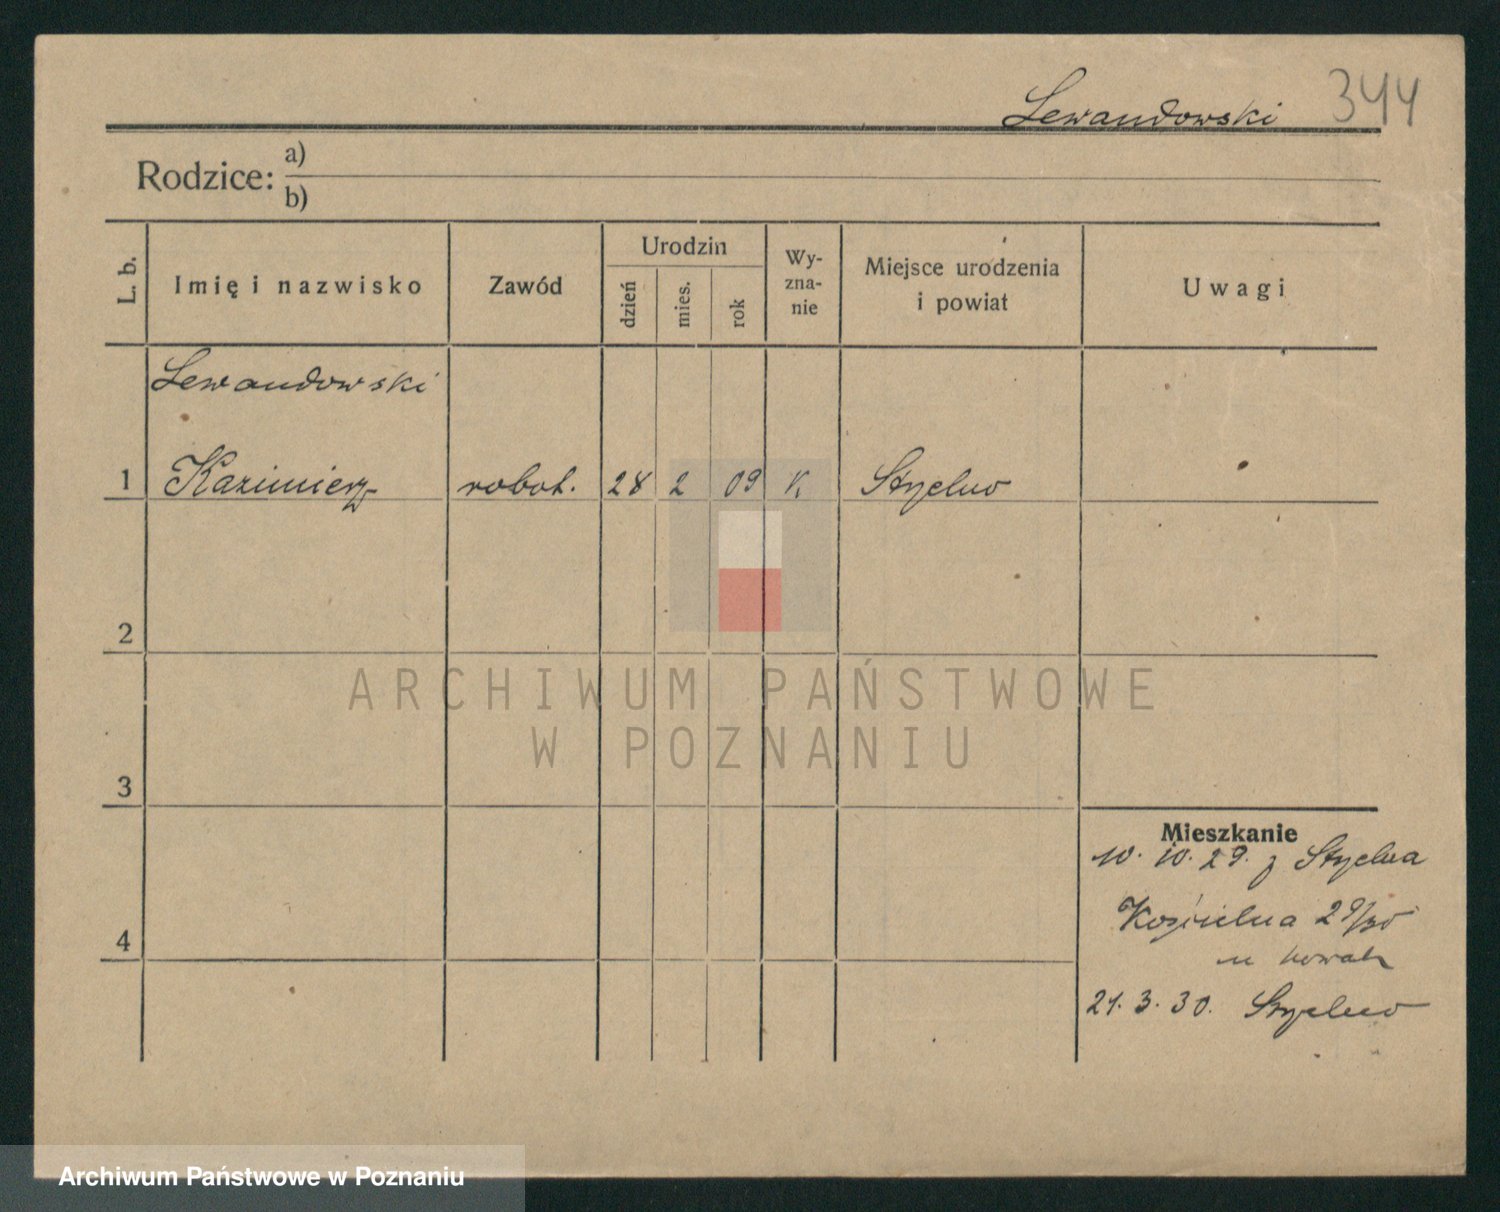 Lewandowski 344
Rodzice: a)
b)
L. b. Imię i nazwisko Zawód Urodzin dzień mies. rok Wy-zna-nie Miejsce urodzenia i powiat Uwagi
Lewandowski
1 Kazimierz robot. 28 2 09 K
2
ARCHIWUM PAŃSTWOWE
W POZNANIU
3
Mieszkanie
10. 10. 29. z
4 Kościelna 29/30
u Nowak
21. 3. 30.
Archiwum Państwowe w Poznaniu